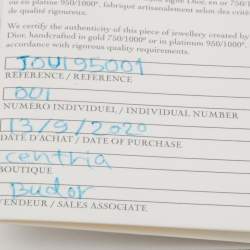 en platine 950/1000°, fabriqué artisanalement selon des
de qualité rigoureux.
We certify the authenticity of this piece of jewellery created by
Dior, handcrafted in gold 750/1000° or in platinum 950/1000°,
accordance with rigorous quality requirements.
JOUI95001
REFERENCE / REFERENCE
001
NUMÉRO INDIVIDUEL / INDIVIDUAL NUMBER
13/9/2020
DATE D'ACHAT / DATE OF PURCHASE
centria
BOUTIQUE
Budor
VENDEUR / SALES ASSOCIATE